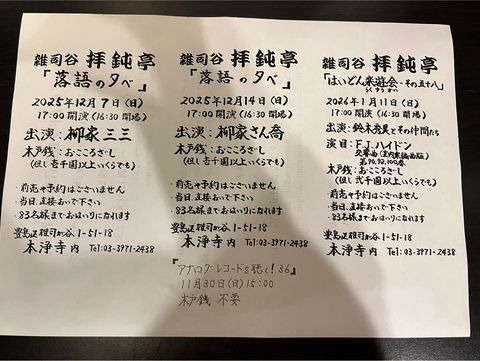 雑司谷 拝鈍亭
「落語の夕べ」
2025年12月7日(日)
17:00開演(16:30開場)
出演:柳家三三
木戸銭:おこころざし
(但し壱千円以上いくらでも)
・前売や予約はございません
・当日、直接お出で下さい
・83名様までおはいりになれます
豊島区雑司が谷1-51-18
本浄寺内 Tel:03-3971-2438
雑司谷 拝鈍亭
「落語の夕べ」
2025年12月14日(日)
17:00開演(16:30開場)
出演:柳家さん喬
木戸銭:おこころざし
(但し壱千円以上いくらでも)
・前売や予約はございません
・当日、直接お出で下さい
・83名様までおはいりになれます
豊島区雑司が谷1-51-18
本浄寺内 Tel:03-3971-2438
『アナログ・レコードを聴く!36』
11月30日(日)15:00
木戸銭 不要
雑司谷 拝鈍亭
「はいどん楽遊会-その五十八」
らくゆうかい
2026年1月11日(日)
17:00開演(16:30開場)
出演:鈴木秀美とその仲間たち
演目:F.J.ハイドン
交響曲(室内楽編曲版)
第90,92,100番
木戸銭:おこころざし
(但し弐千円以上いくらでも)
・前売や予約はございません
・当日、直接お出で下さい
・83名様までおはいりになれます
豊島区雑司が谷1-51-18
本浄寺内 Tel:03-3971-2438